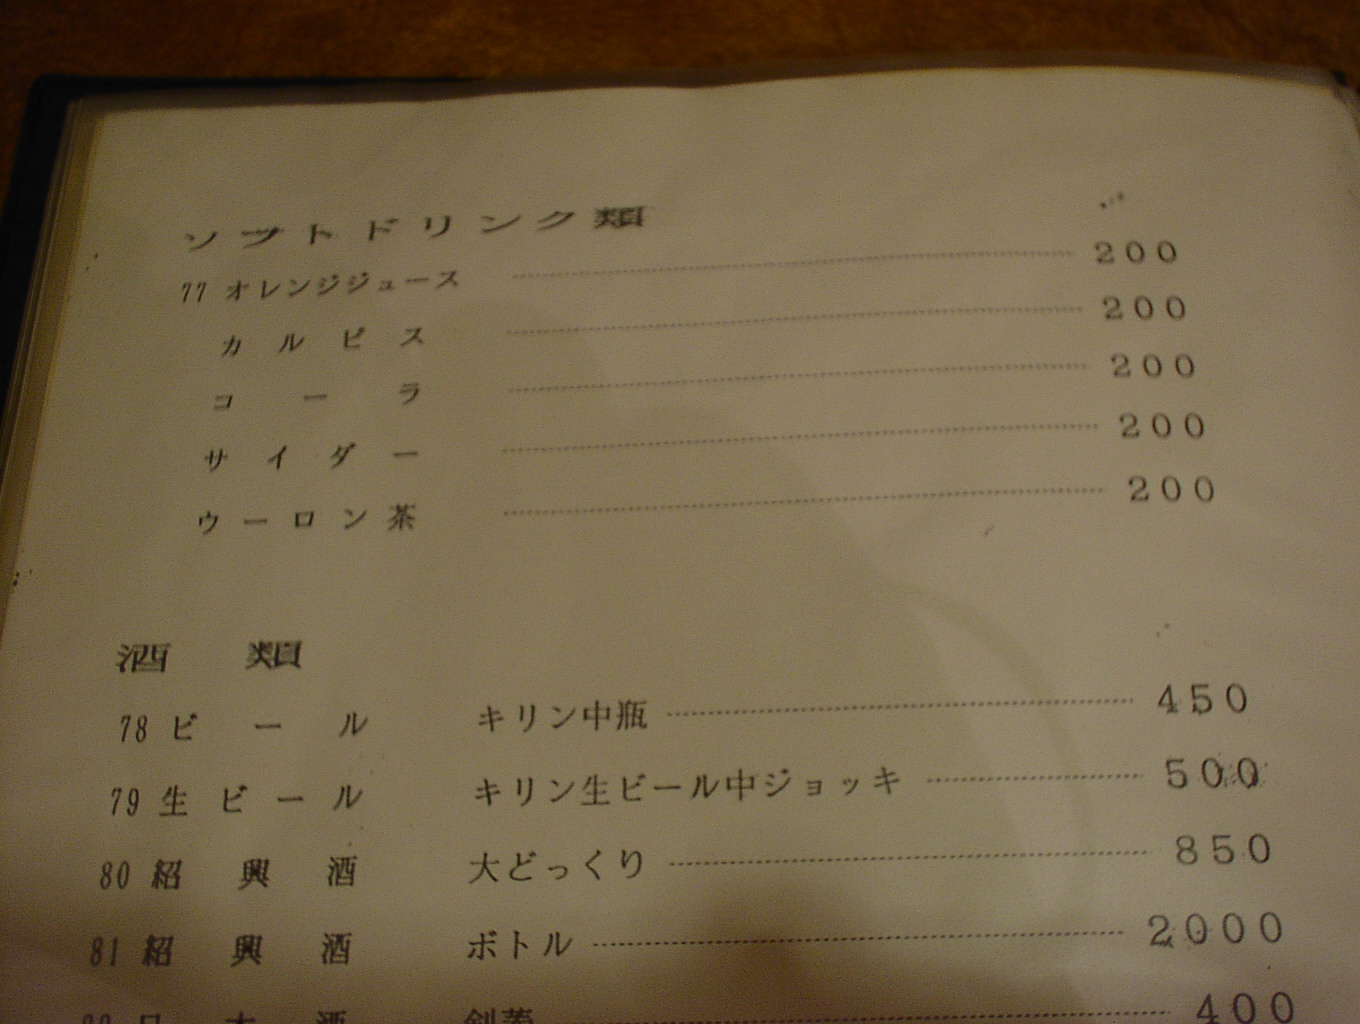 ソフトドリンク類
77 オレンジジュース 200
カルピス 200
コーラ 200
サイダー 200
ウーロン茶 200
酒類
78 ビール キリン中瓶 450
79 生ビール キリン生ビール中ジョッキ 500
80 紹興酒 大どっくり 850
81 紹興酒 ボトル 2000
日本酒 剣菱 400